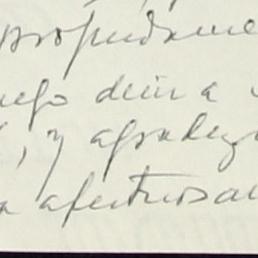 profundame
uego decir a
, y agradez
a afectuosa